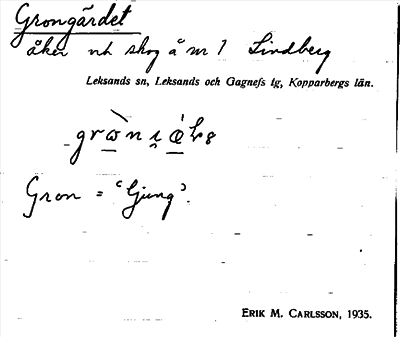 Grongärdet
åker och skog å nr 1 Lindberg
Leksands sn, Leksands och Gagnefs tg, Kopparbergs län.
Gron = "Ljung".
ERIK M. CARLSSON, 1935.